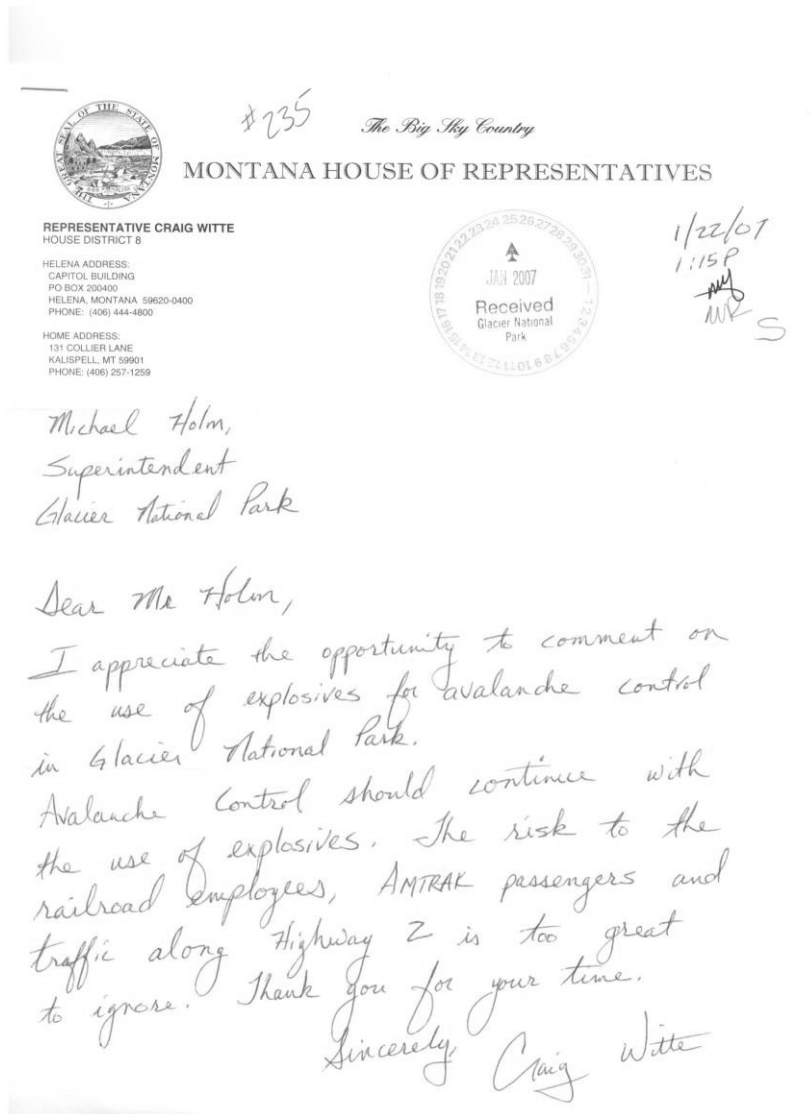 #235
The Big Sky Country
MONTANA HOUSE OF REPRESENTATIVES
THE GREAT SEAL OF THE STATE OF MONTANA
REPRESENTATIVE CRAIG WITTE
HOUSE DISTRICT 8
HELENA ADDRESS:
CAPITOL BUILDING
PO BOX 200400
HELENA, MONTANA 59620-0400
PHONE: (406) 444-4800
HOME ADDRESS:
131 COLLIER LANE
KALISPELL, MT 59901
PHONE: (406) 257-1259
JAN 2007
Received
Glacier National
Park
1/22/07
1:15P
S
Michael Holm,
Superintendent
Glacier National Park
Dear Mr Holm,
I appreciate the opportunity to comment on
the use of explosives for avalanche control
in Glacier National Park.
Avalanche Control should continue with
the use of explosives. The risk to the
railroad employees, AMTRAK passengers and
traffic along Highway 2 is too great
to ignore. Thank you for your time.
Sincerely,
Craig Witte